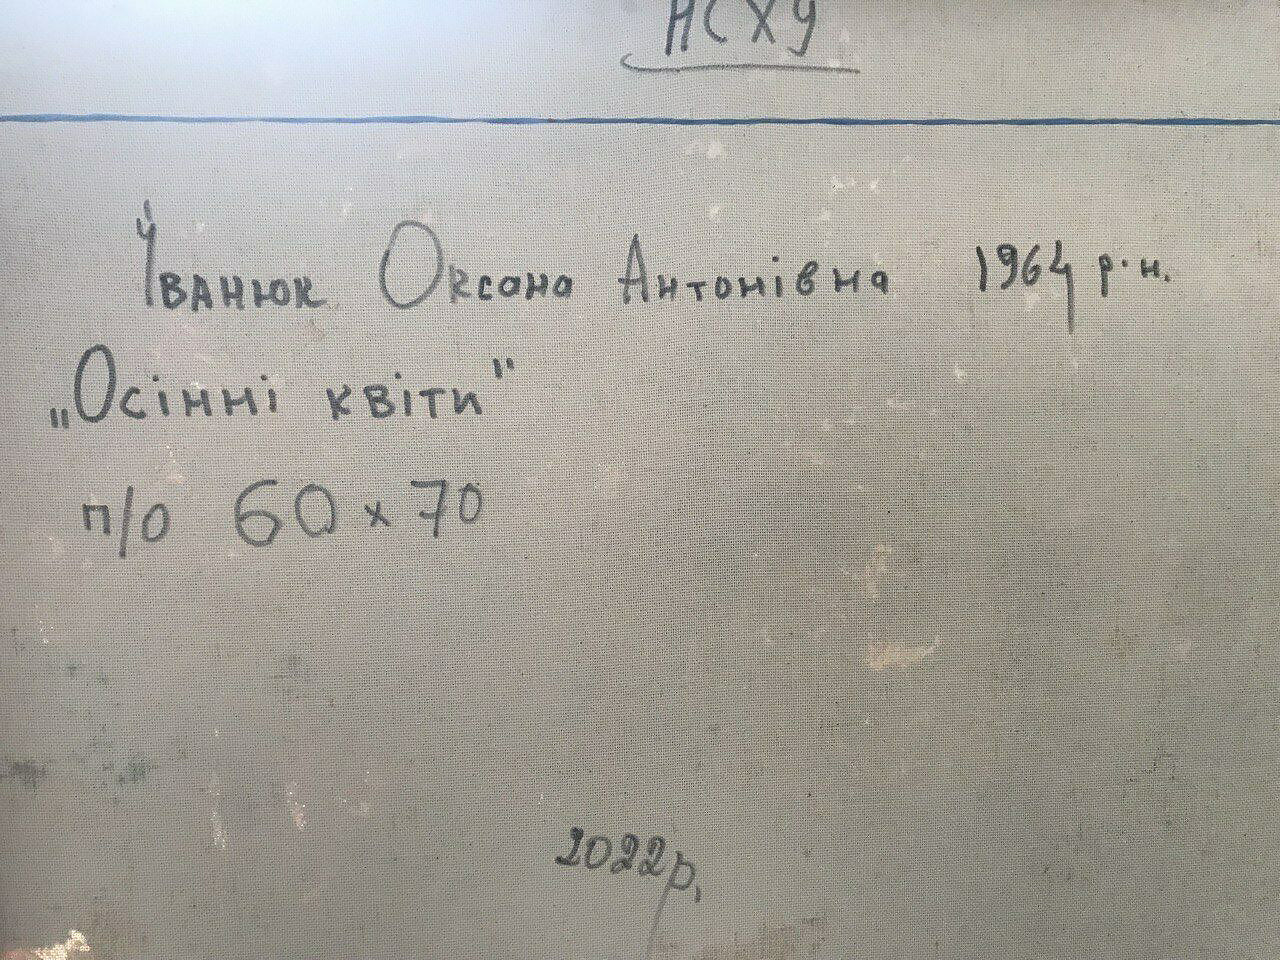 НСХУ
Іванюк Оксана Антонівна 1964 р.н.
„Осінні квіти"
п/о 60 х 70
2022р.